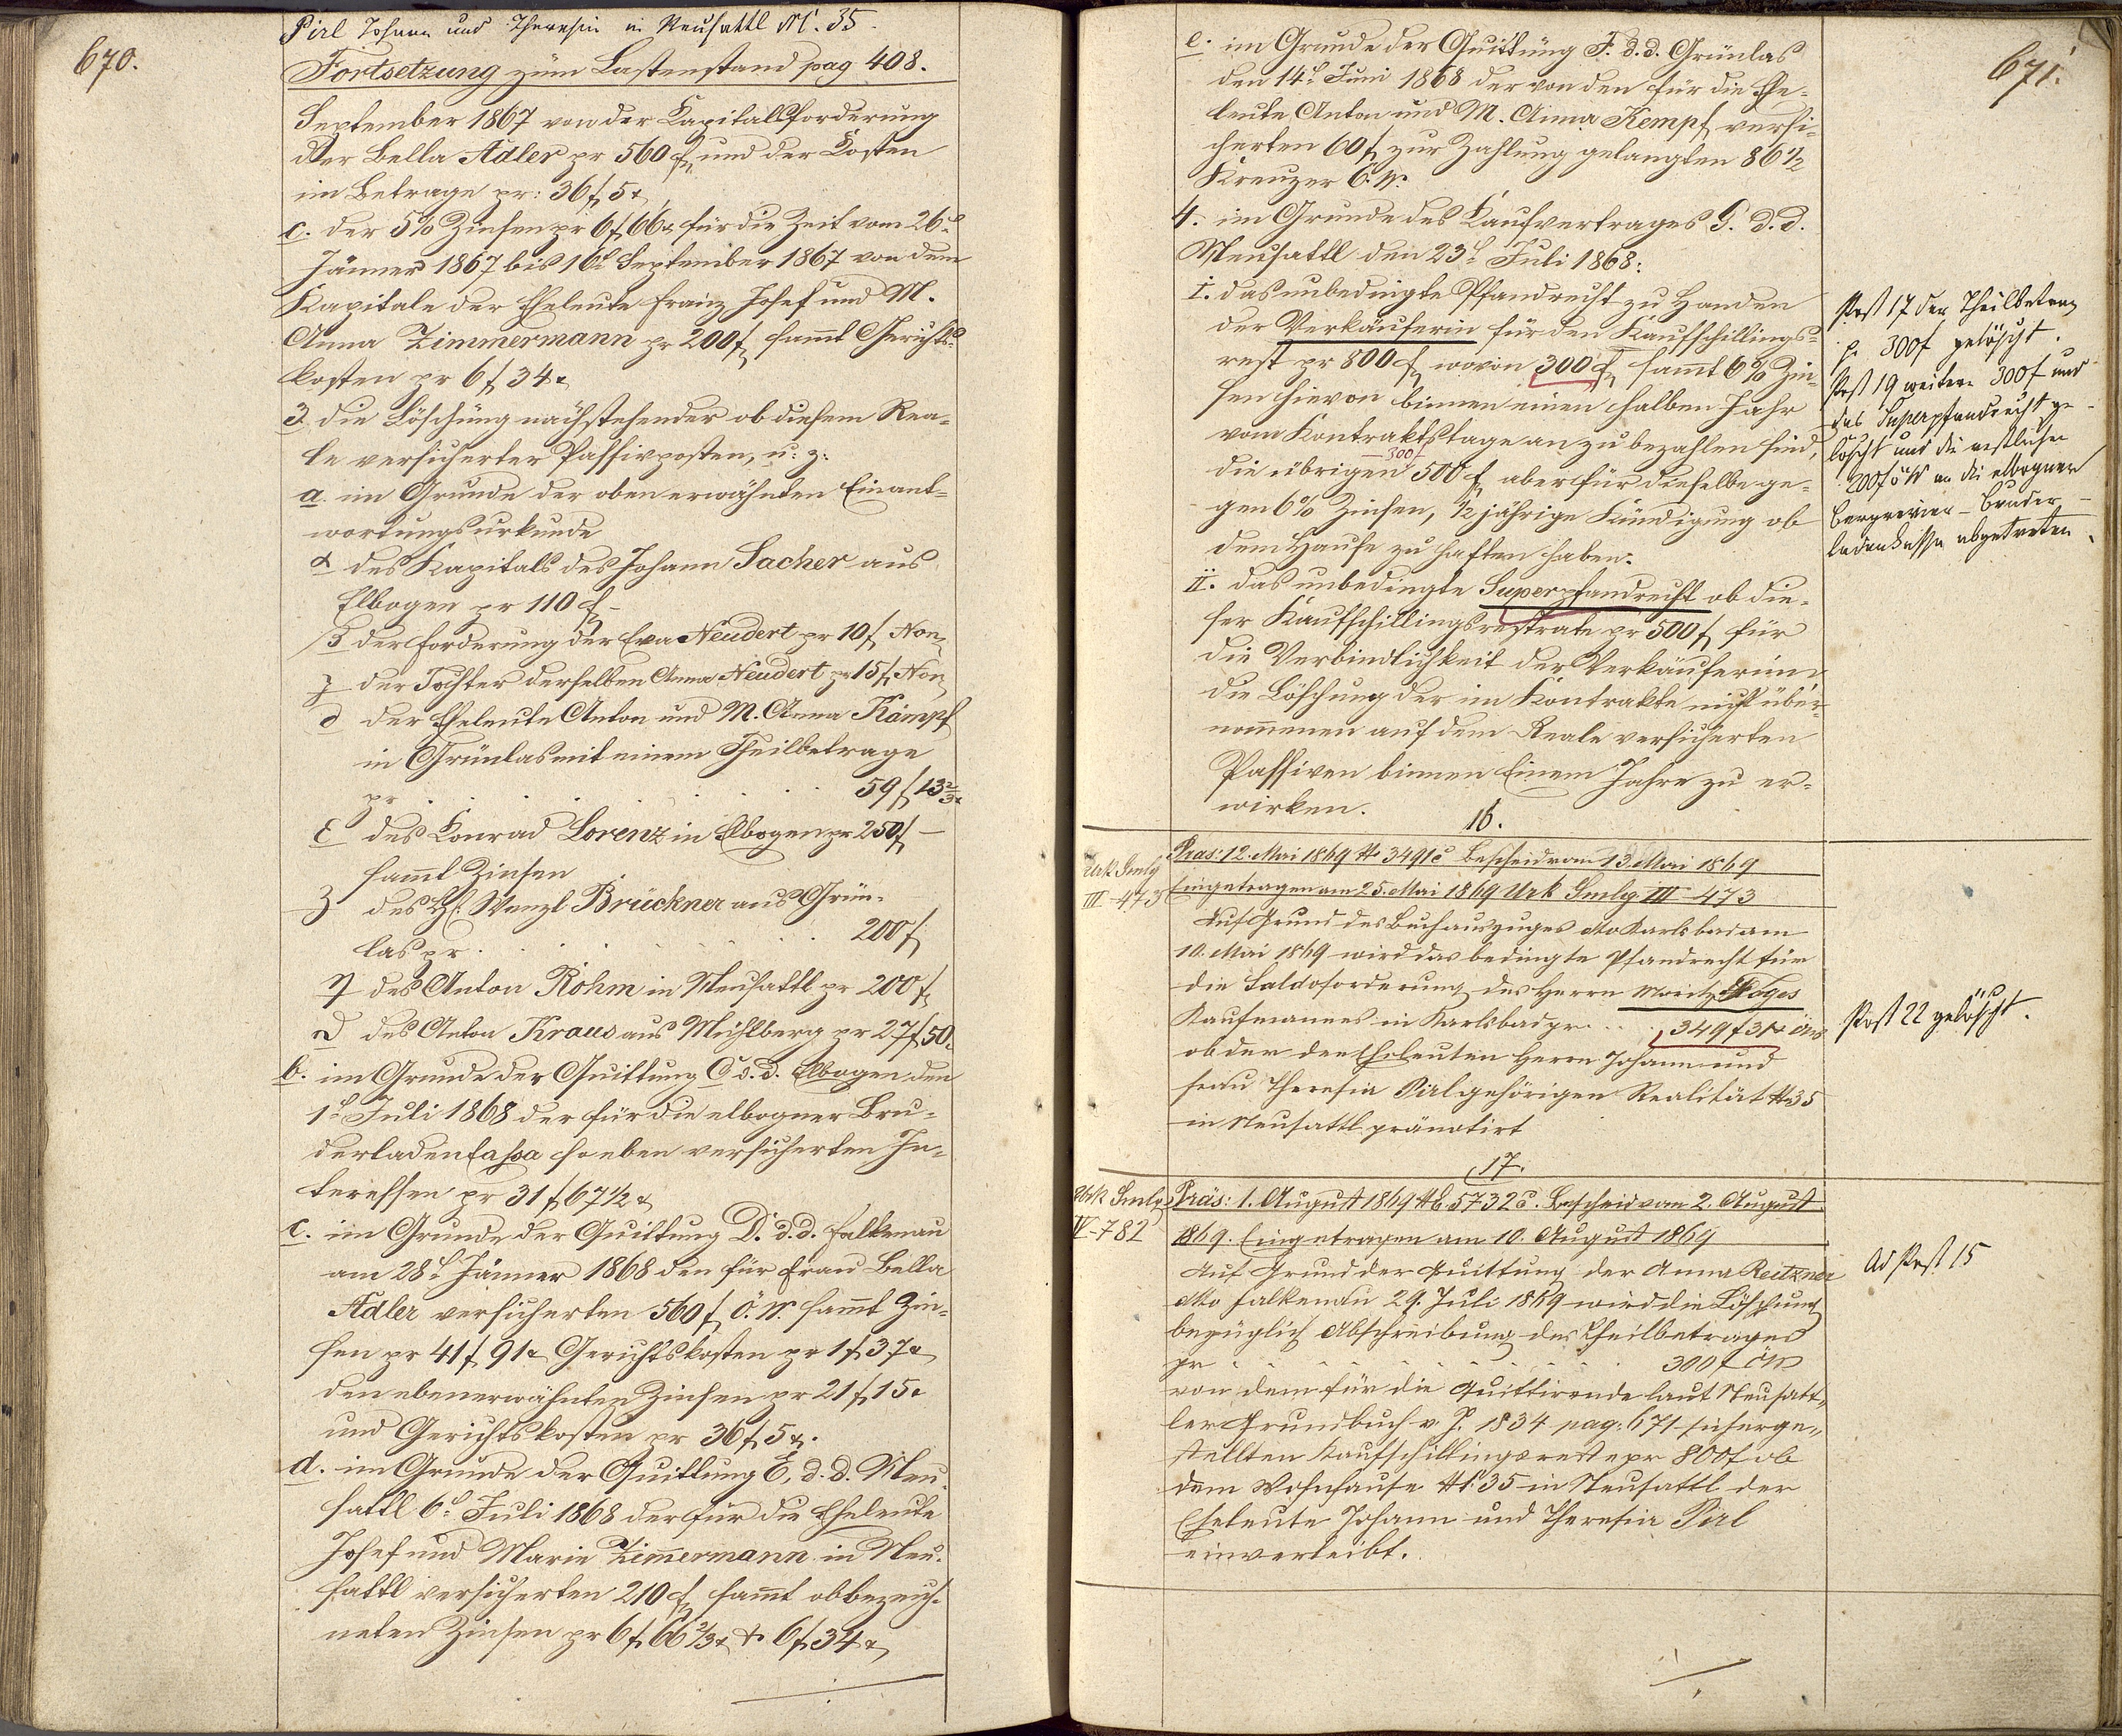 670.
Pirl Johann und Theresia in Neusattl N. 35.
Fortsetzung zum Lastenstand pag 408.
September 1867 von der Kapitalsforderung
der Bella Adler pr 560 f und der Kosten
im Betrage pr: 36 f 5 x
c. der 5% Zinsen pr 6 f 66 x für die Zeit vom 26t
Jänner 1867 bis 16t September 1867 von dem
Kapitale der Eheleute Franz Josef und M.
Anna Zimmermann pr 200 f sammt Gerichts-
kosten pr 6 f 34 x
3. die Löschung nachstehender ob diesem Rea-
le versicherter Passivposten, u: z:
a. im Grunde der oben erwähnten Einant-
wortungsurkunde
α des Kapitals des Johann Sacher aus
Elbogen pr 110 f -
β der Forderung der Eva Neudert pr 10 f Non
γ der Tochter derselben Anna Neudert pr 15 f Non
δ der Eheleute Anton und M. Anna Kämpf
in Grünlas mit einem Theilbetrage
pr . . . . . . 59 f 13 2/3 x
ε des Konrad Lorenz in Elbogen pr 250 f -
sammt Zinsen
ζ des H. Wenzl Brückner aus Grün-
las pr . . . . . . 200 f
η des Anton Röhm in Neusattl pr 200 f
ϑ des Anton Kraus aus Mühlberg pr 27 f 50.
b. im Grunde der Quittung C d. d. Elbogen den
1t Juli 1868 der für die elbogner Bru-
derladencassa soeben versicherten In-
teressen pr 31 f 67 1/2 x
c. im Grunde der Quittung D. d. d. Falkenau
am 28t Jänner 1868 den für Frau Bella
Adler versicherten 560 f Ö. W. sammt Zin-
sen pr 41 f 91 x Gerichtskosten pr 1 f 37 x
den ebenerwähnten Zinsen pr 21 f 15 x
und Gerichtskosten pr 36 f 5 x.
d. im Grunde der Quittung E, d. d. Neu-
sattl 6t Juli 1868 der für die Eheleute
Josef und Marie Zimmermann in Neu-
sattl versicherten 210 f sammt obbezeich-
neten Zinsen pr 6 f 66 2/3 x + 6 f 34 x
671.
e. im Grunde der Quittung F. d. d. Grünlas
den 14t Juni 1868 der von den für die Ehe-
leute Anton und M. Anna Kempf versi-
cherten 60 f zur Zahlung gelangten 86 1/2
Kreuzer Ö. W.
4. im Grunde des Kaufvertrages G. d. d.
Neusattl den 23t Juli 1868:
I. das unbedingte Pfandrecht zu Handen
der Verkäuferin für den Kaufschillings-
rest pr 800 f, wovon 300 f sammt 6% Zin-
sen hievon binnen einen halben Jahr
vom Kontraktstage an zu bezahlen sind,
300 f
die übrigen 500 f aber für dieselbe ge-
gen 6% Zinsen, 1/2 jährige Kündigung ob
dem Hause zu haften haben.
II. das unbedingte Superpfandrecht ob die-
ser Kaufschillingsrestrate pr 500 f für
die Verbindlichkeit der Verkäuferin
die Löschung der im Kontrakte nicht über-
nommenen auf dem Reale versicherten
Passiven binnen Einem Jahre zu er-
wirken.
Post 17 der Theilbetrag
p. 300 f gelöscht.
Post 19 weitere 300 f und
das Superpfandrecht ge-
löscht und die restlichen
200 f öW an die elbogner
Bergrevier-Bruder-
ladenkassa abgetreten.
16.
Urk Smlg
III - 473
Präs: 12. Mai 1869 N 3491c Bescheid vom 13. Mai 1869
Eingetragen am 25. Mai 1869 Urk Smlg. III - 473
Auf Grund des Buchauszuges dto Karlsbad am
10. Mai 1869 wird das bedingte Pfandrecht für
die Saldoforderung des Herrn Moritz Loges
Kaufmannes in Karlsbad pr . . . 349 f 31 x öW
ob der den Eheleuten Herrn Johann und
Frau Theresia Pirl gehörigen Realität N. 35
in Neusattl pränotirt
Post 22 gelöscht.
17.
Urk Smlg
IV - 782
Präs: 1. August 1869 N E. 5732c. Bescheid vom 2. August
1869. Eingetragen am 10. August 1869
Auf Grund der Quittung der Anna Reitzner
dto Falkenau 29. Juli 1869 wird die Löschung
bezüglich Abschreibung des Theilbetrages
pr . . . . . . . . . 300 f öW
von dem für die Quittirende laut Neusatt-
ler Grundbuch v. J. 1834 pag: 671 sicherge-
stellten Kaufschillingsreste pr 800 f ob
dem Wohnhause N. 35 in Neusattl der
Eheleute Johann und Theresia Pirl
einverleibt.
Ad Post 15